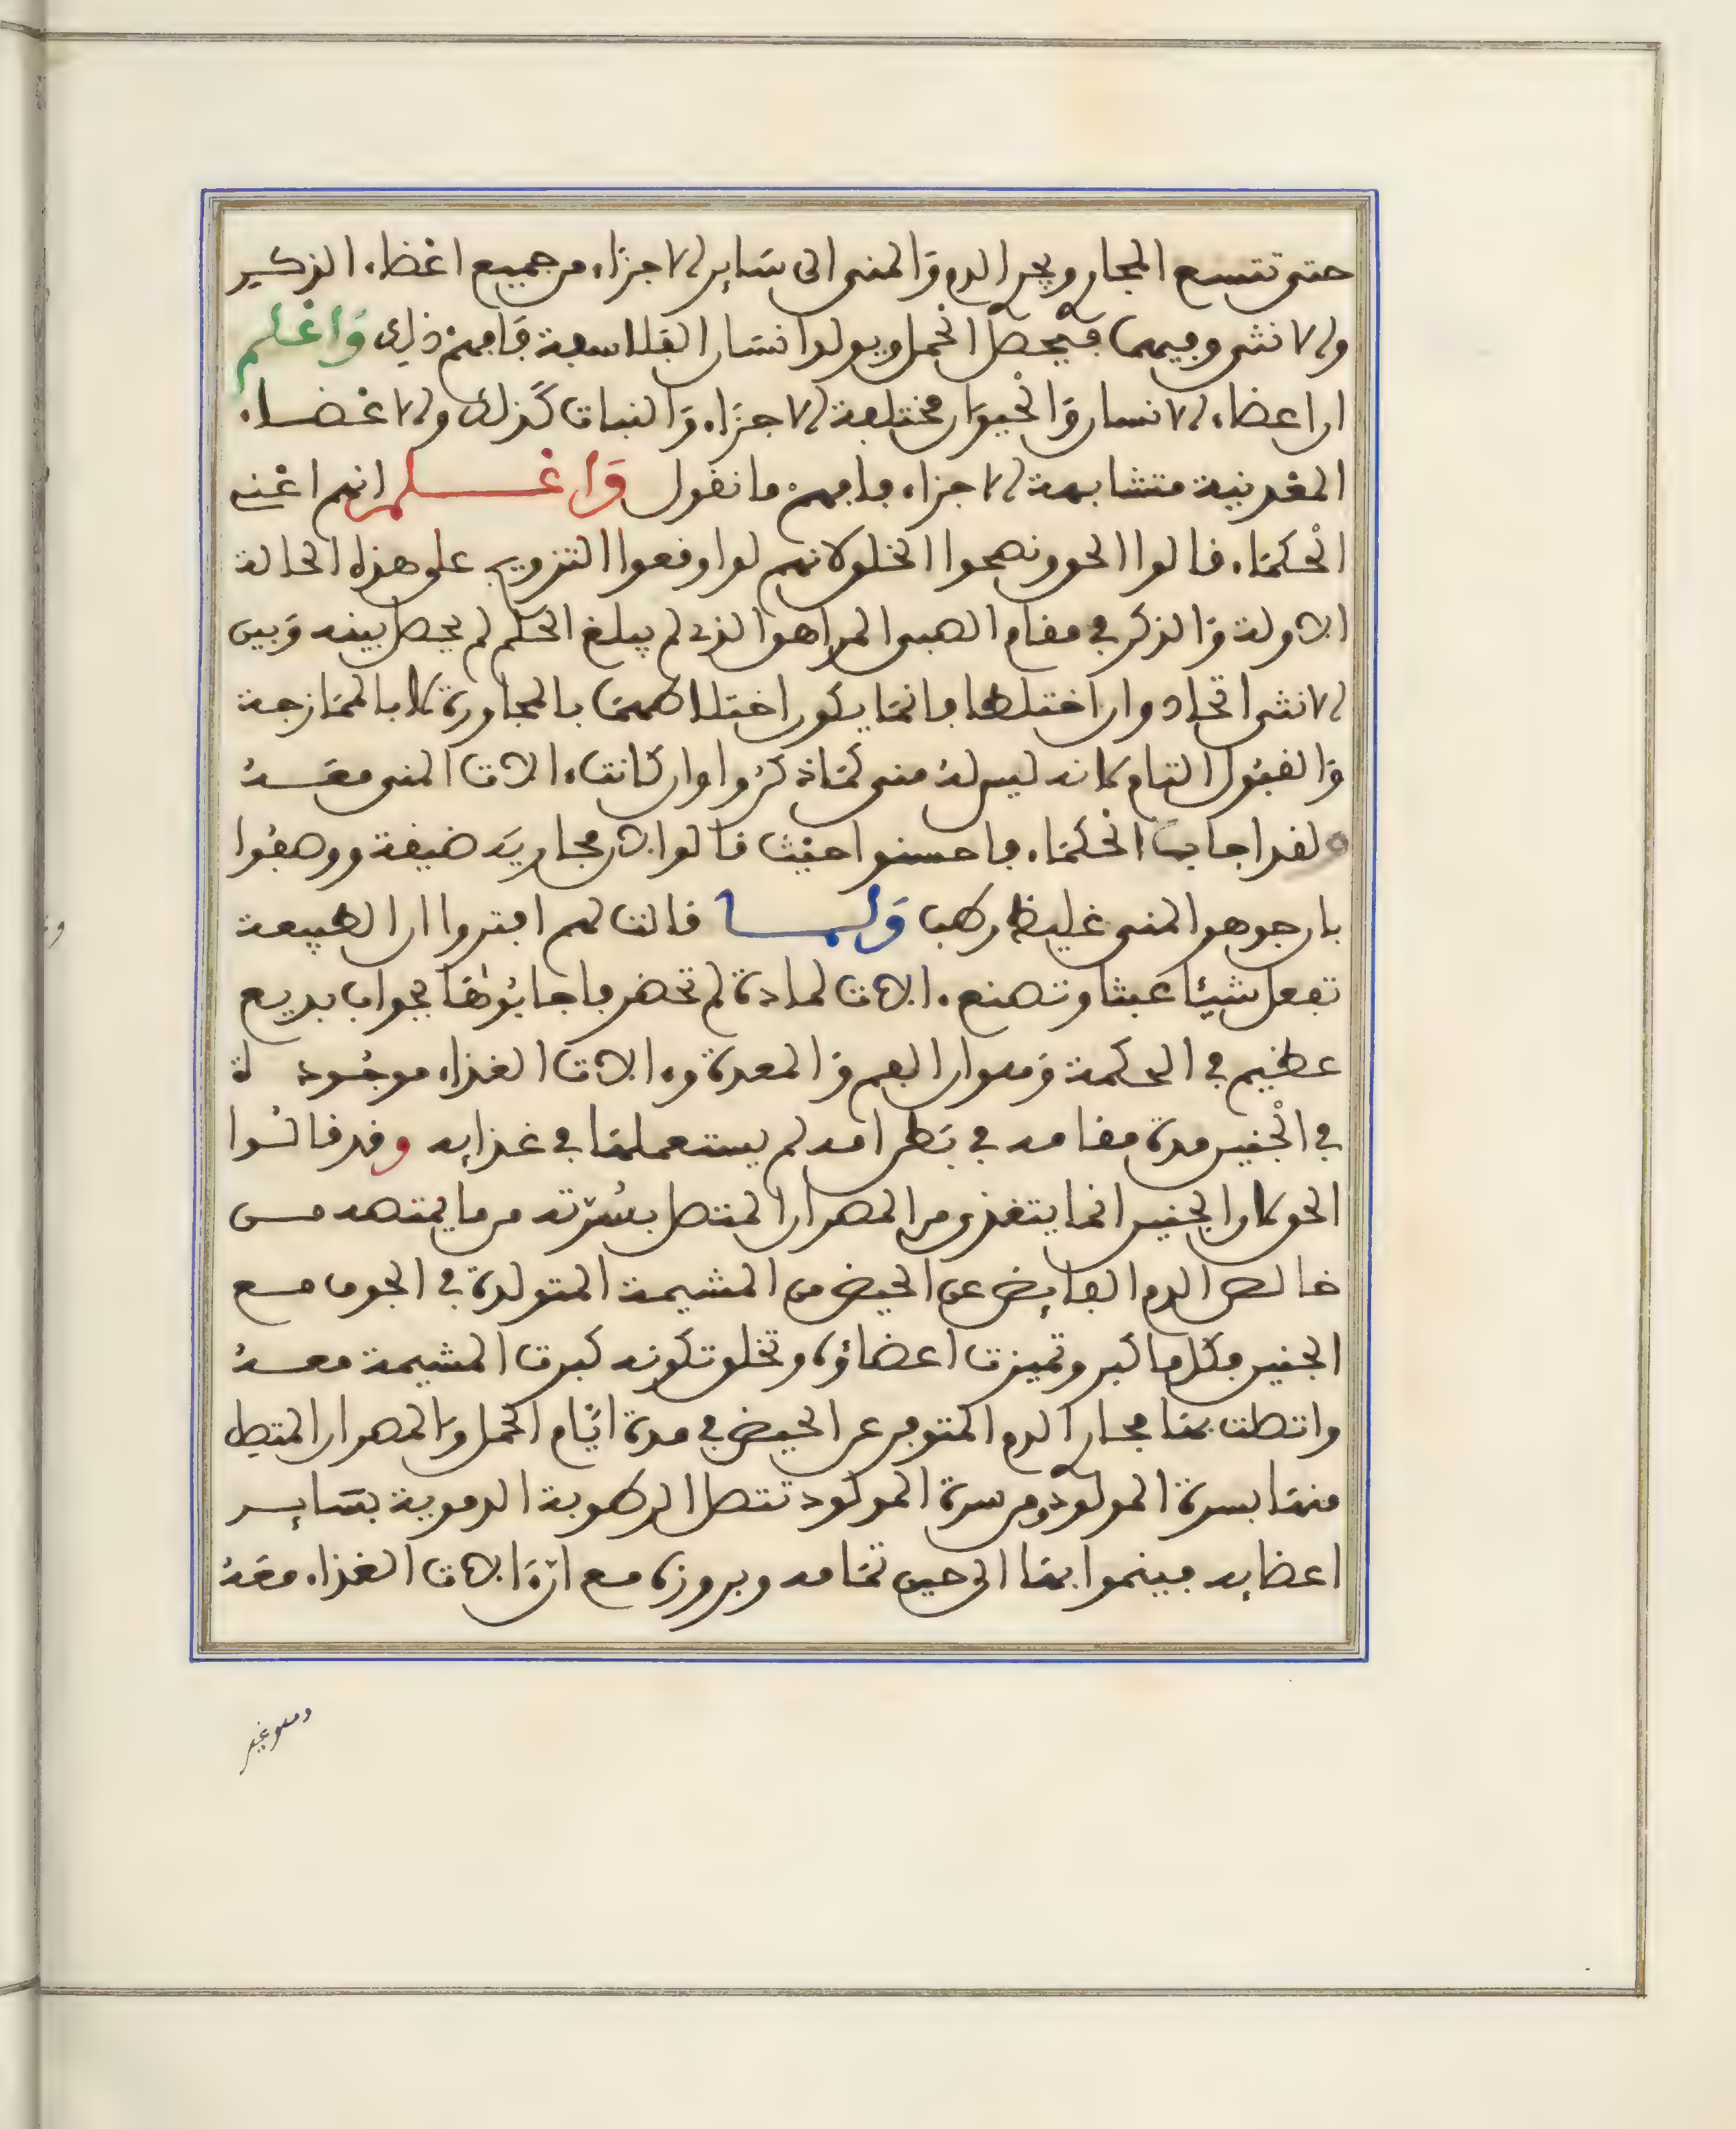 حتى تتسع المجار ويجر الدم وَالمنى الى سَاير الاجزَاء من جميع اعْضاء الذكـير
والانثى وفيهما فيحصل الحمل ويولد انسَان الفلاسفة فَافهم ذلك وَاعْلم
ان اعضاء الانسان وَالْحيوَان مختلفة الاجزَاء وَالنبات كَذلك والاعْضاء
المعْدنية متشابهة الاجزاء فافهم ما نقول وَاعْـلم انهم اعْنى
الْحكمَاء قالوا الحق ونصحوا الخلق لانهم لو اوقعوا التزويج على هذه الحالة
الاولة وَالذكر في مقام الصبى المراهق الذى لم يبلغ الحكم لم يحصل بينه وَبين
الانثى اتحاد وان اختلطا فانمَا يكون اختلاطهمَا بالمجاورة لا بالممَازجة
وَالقبُول التام لانه ليس لهُ منى كمَا ذكرُوا وان كانت ءالات المنى معَـهُ
لقد اجابت الحكمَاء فاحسنوا حيْث قالوا لان مجاريَه ضيقة ووصفُوا
بان جوهر المنى غليظ رطب وَلمـا قالت لهم افتروا ان الطبيعة
تفعل شيئا عبثا وتصنع ءالات لمادة لم تحضر فاجابُوهَا بجواب بديع
عظيم في الحكمة وَهو ان الفم وَالمعدة وءالات الغذاء موجُود ة
في الْجنين مدة مقامه في بَطن امه لم يستعملهَا في غذايه وقد قالُـوا
الحق لان الجنين انما يتغذى من المصران المتصل بسُرّته من ما يمتصه مـن
خالص الدم الفايض عن الحيض من المشيمة المتولدة في الجوف مـع
الجنين فكل ما كبر وتميزت اعضاؤه وتخلق تكونه كبرت المشيمة معـهُ
واتصلت بهَا مجار الدم المتوفر عن الحيض في مدة ايَّام الحمل وَالمصران المتصل
منهَا بسرة المولود ومن سرة المولود تتصل الرطوبة الدموية بسَايـر
اعضايه فينموا بهَا الى حين تمَامه وبروزه مـع انّ ءَالات الغذاء معَهُ
وهو غير